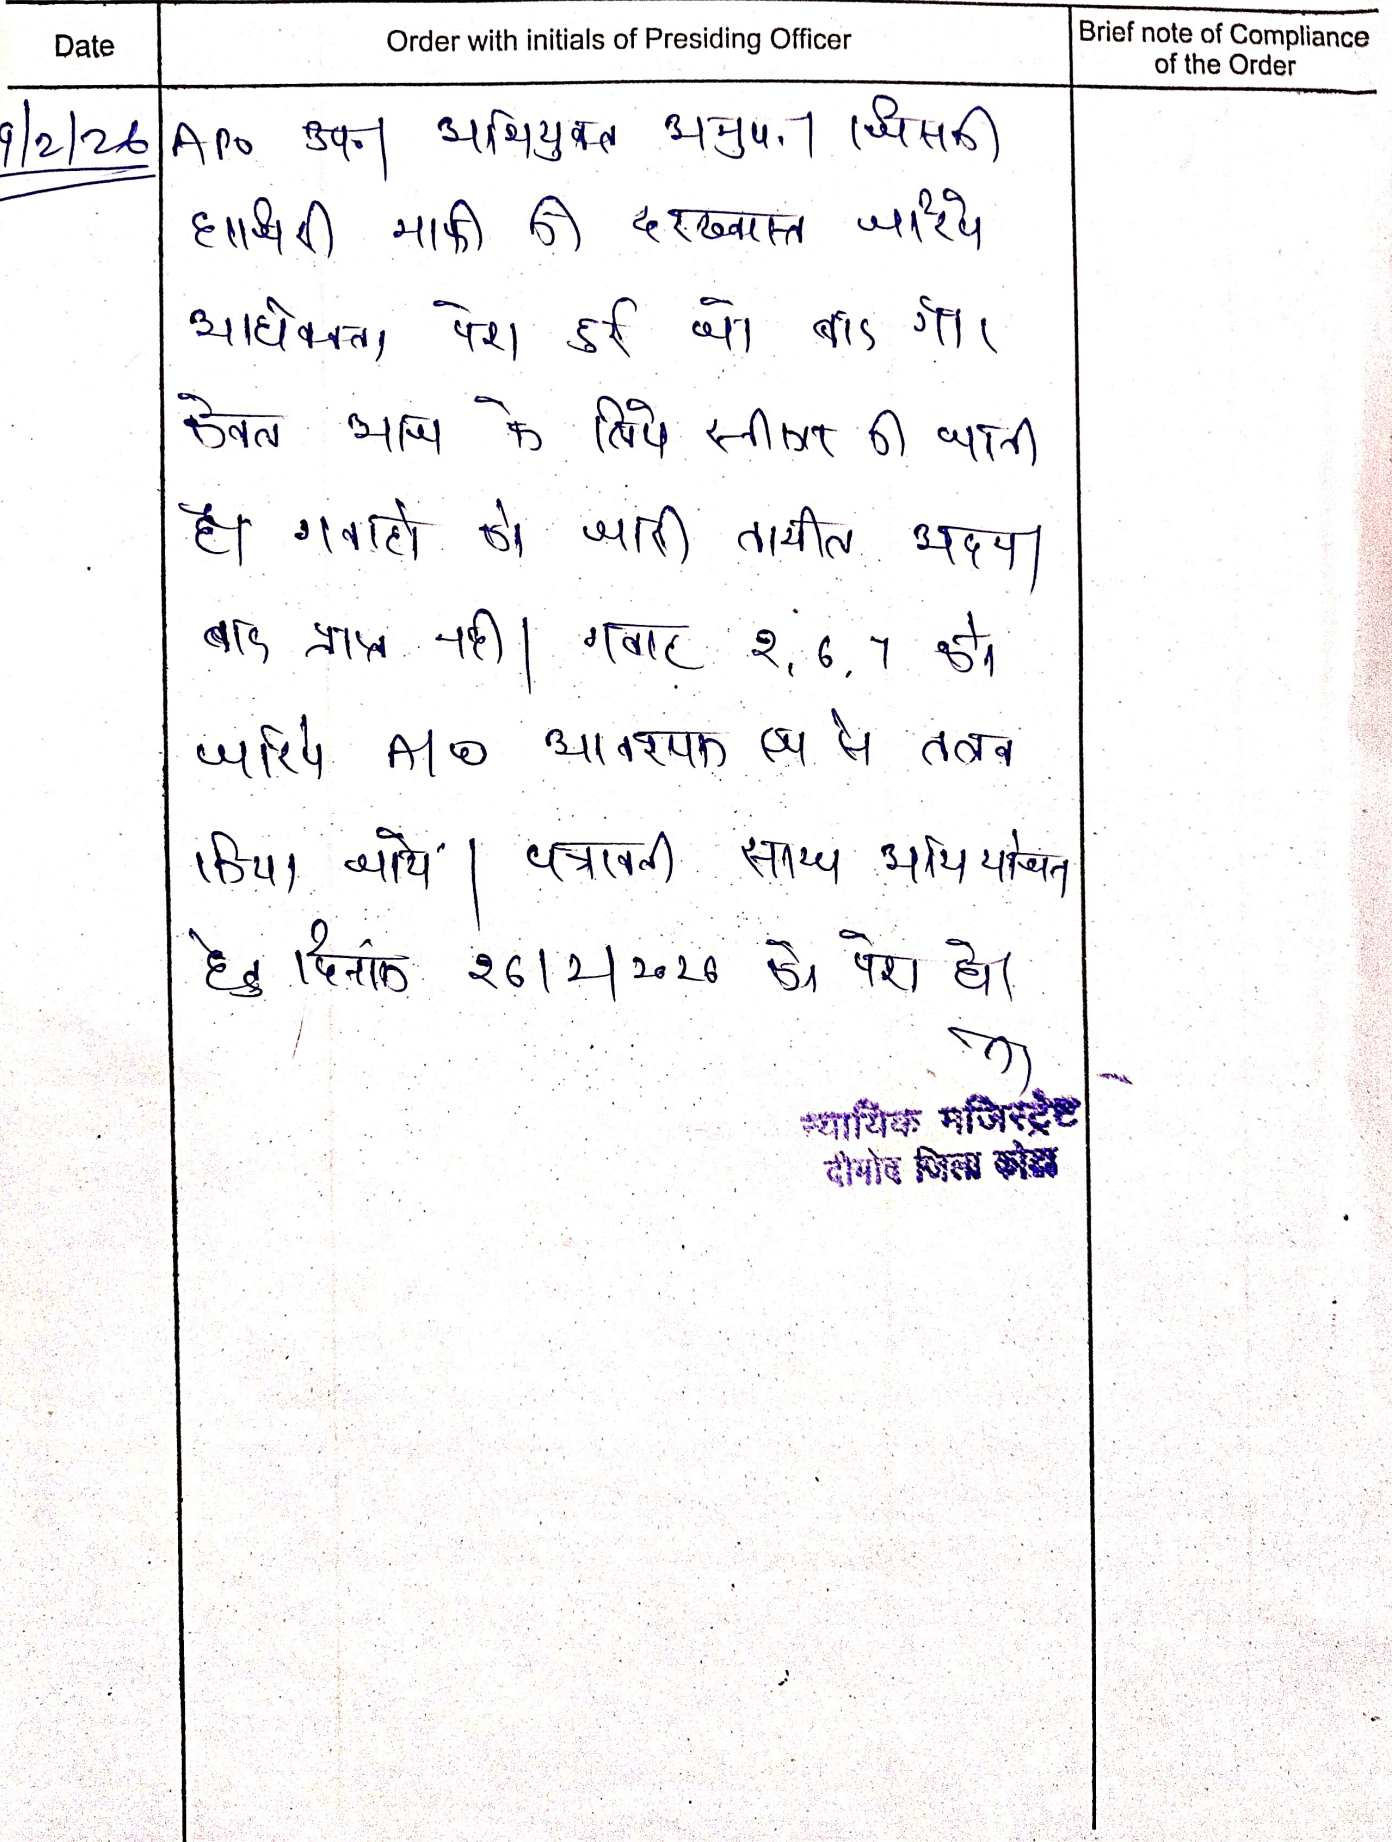 Date
Order with initials of Presiding Officer
Brief note of Compliance
of the Order
9/2/26 APO उप०। अभियुक्त अनुप.। जिसकी
हाजिरी माफी की दरख्वास्त जरिये
अधिवक्ता पेश हुई जो बाद गौर
केवल आज के लिये स्वीकार की जाती
है। गवाहो को जारी तामील अदम
बाद प्राप्त नही। गवाह 2, 6, 7 को
जरिये आवश्यक रूप से तलब
किया जाये। पत्रावली साक्ष्य अभियोजन
हेतु दिनांक 26/2/2026 को पेश हो।
न्यायिक मजिस्ट्रेट
जिला कोटा